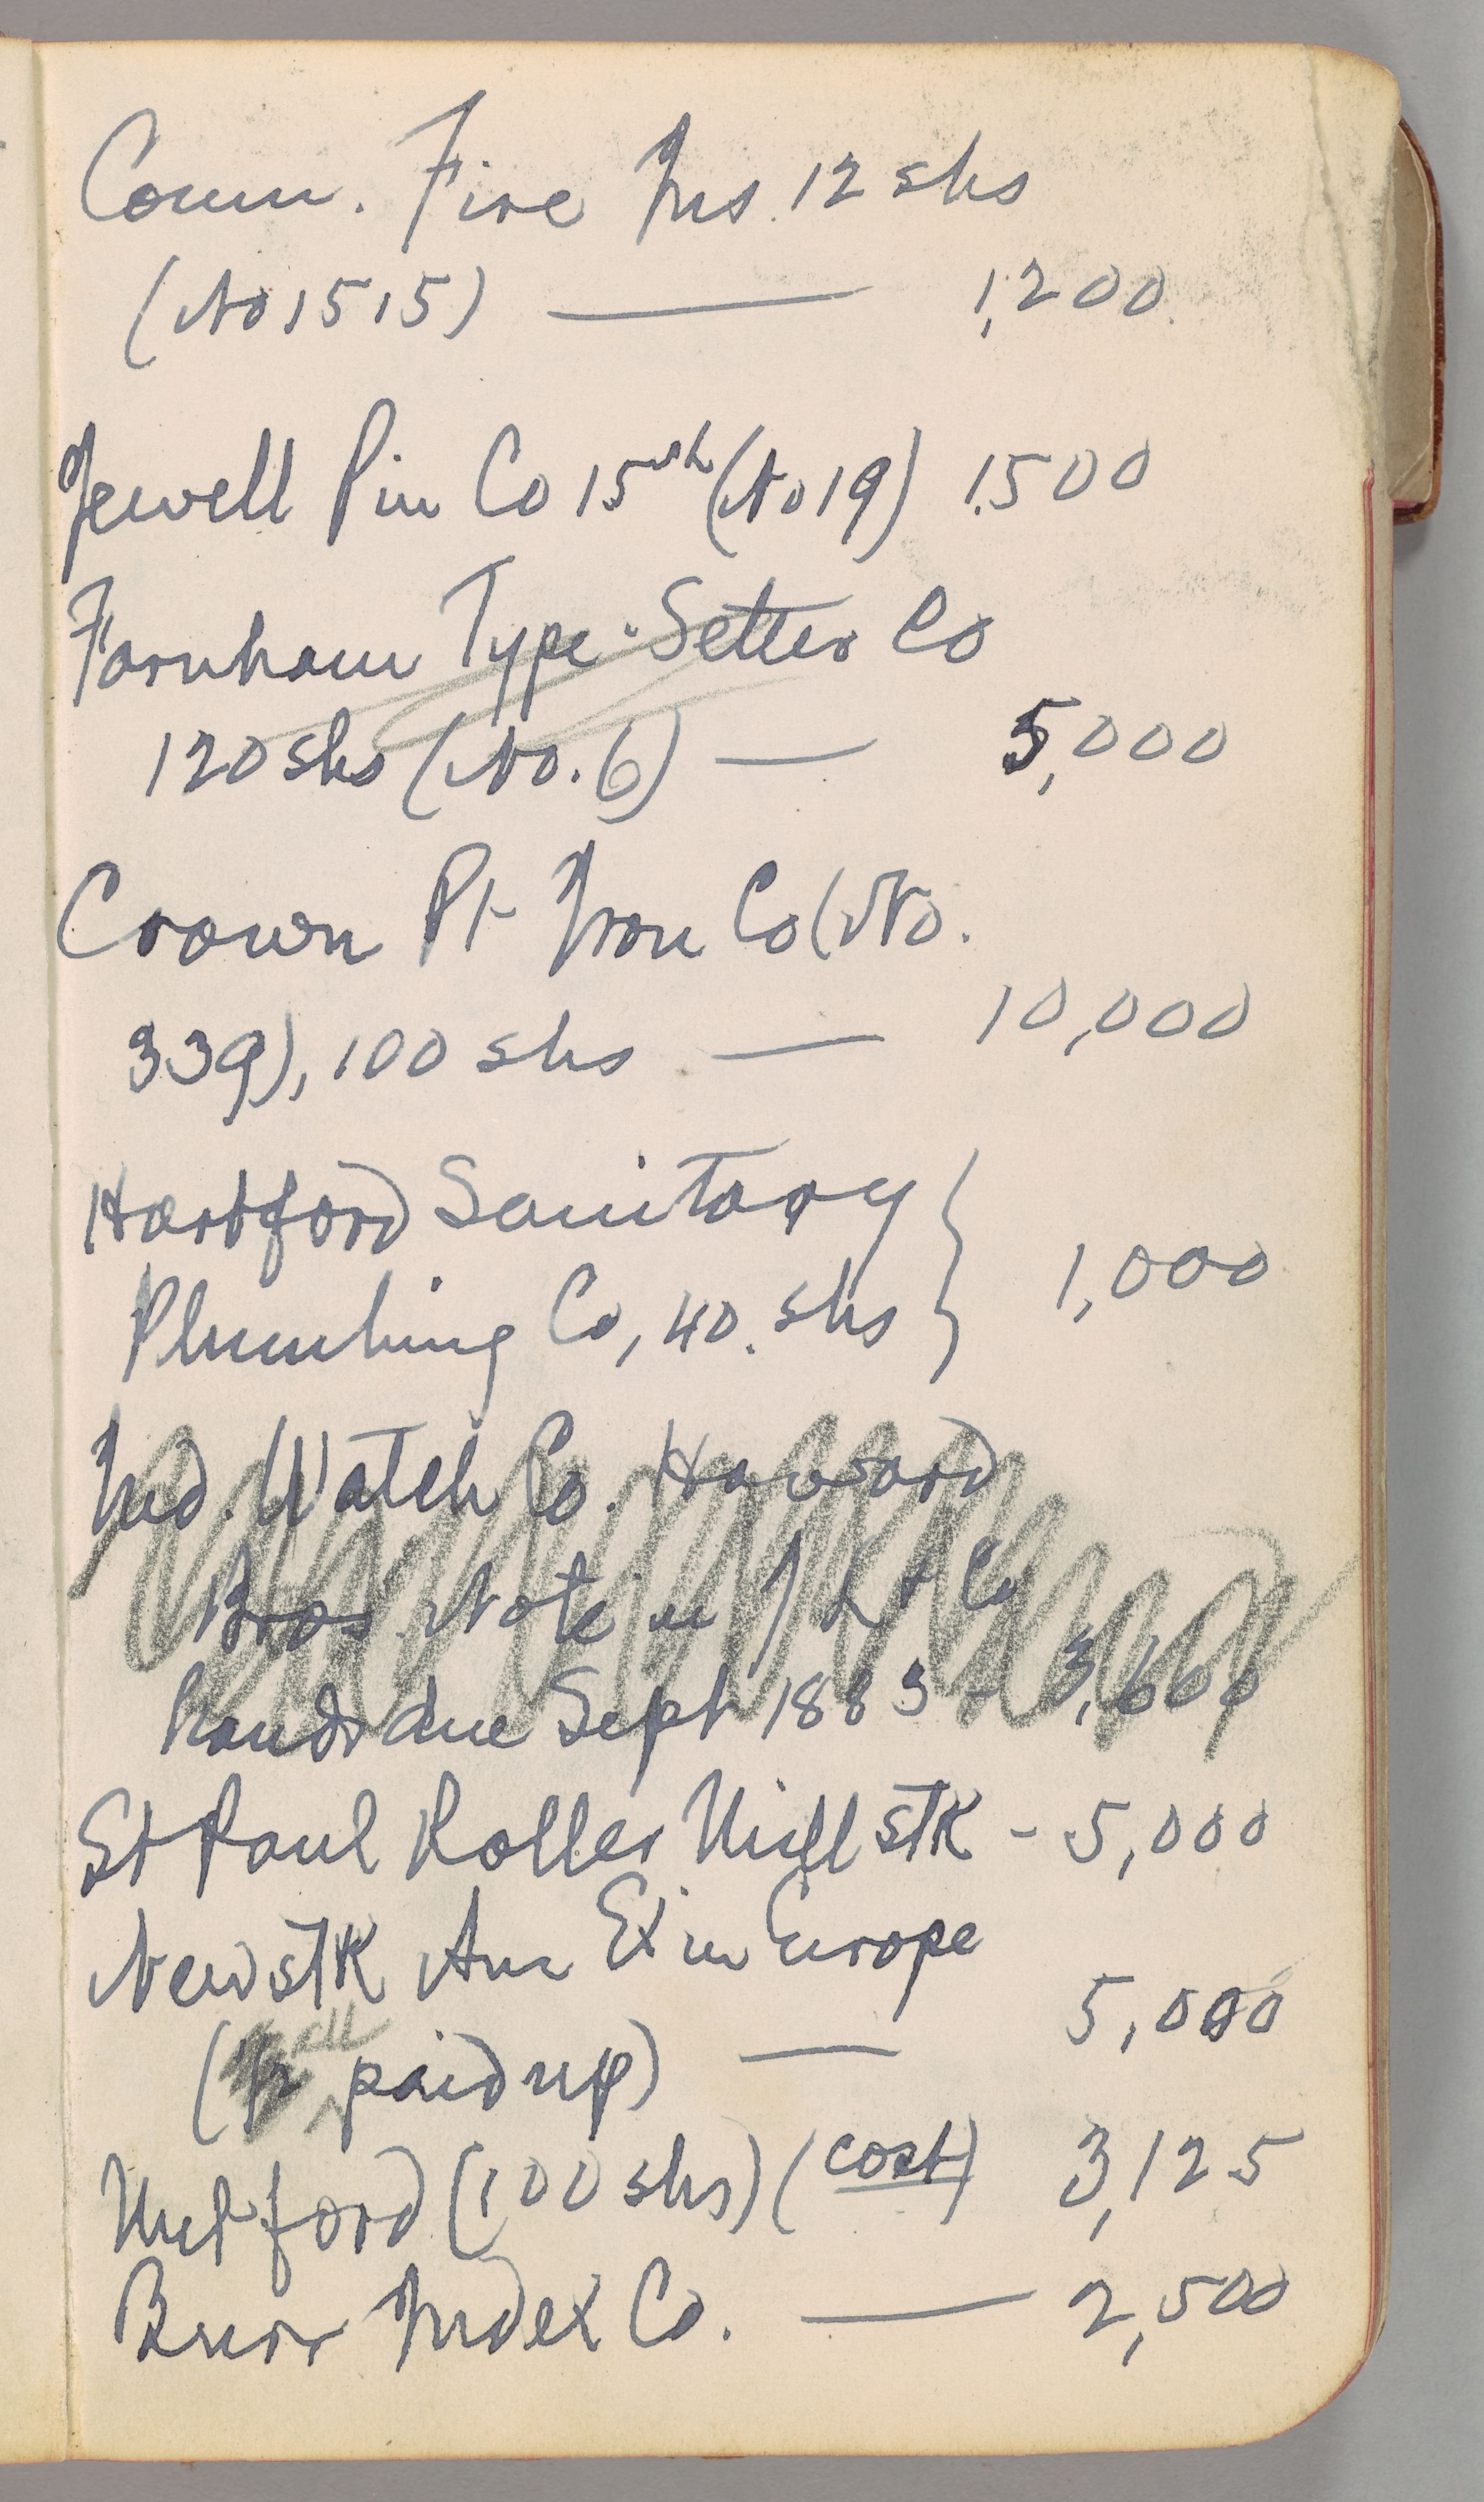 Conn. Fire Ins. 12 shs
(No 1515) — 1,200.
Jewell Pin Co 15 sh (No 19) 1.500
Farnham Type-Setter Co
120 shs (No. 6) — 5,000
Crown Pt Iron Co (No.
339), 100 shs — 10,000
Hartford Sanitary
Plumbing Co, 40. shs } 1,000
Ind. Watch Co. Howard
Bros. Note in
hands due Sept 1883 - 3,600
St Paul Roller Mill stk - 5,000
New stk Am Ex in Europe
5,000
(½ all paid up) —
Metford (100 shs) (cost) 3,125
Burr Index Co. — 2,500